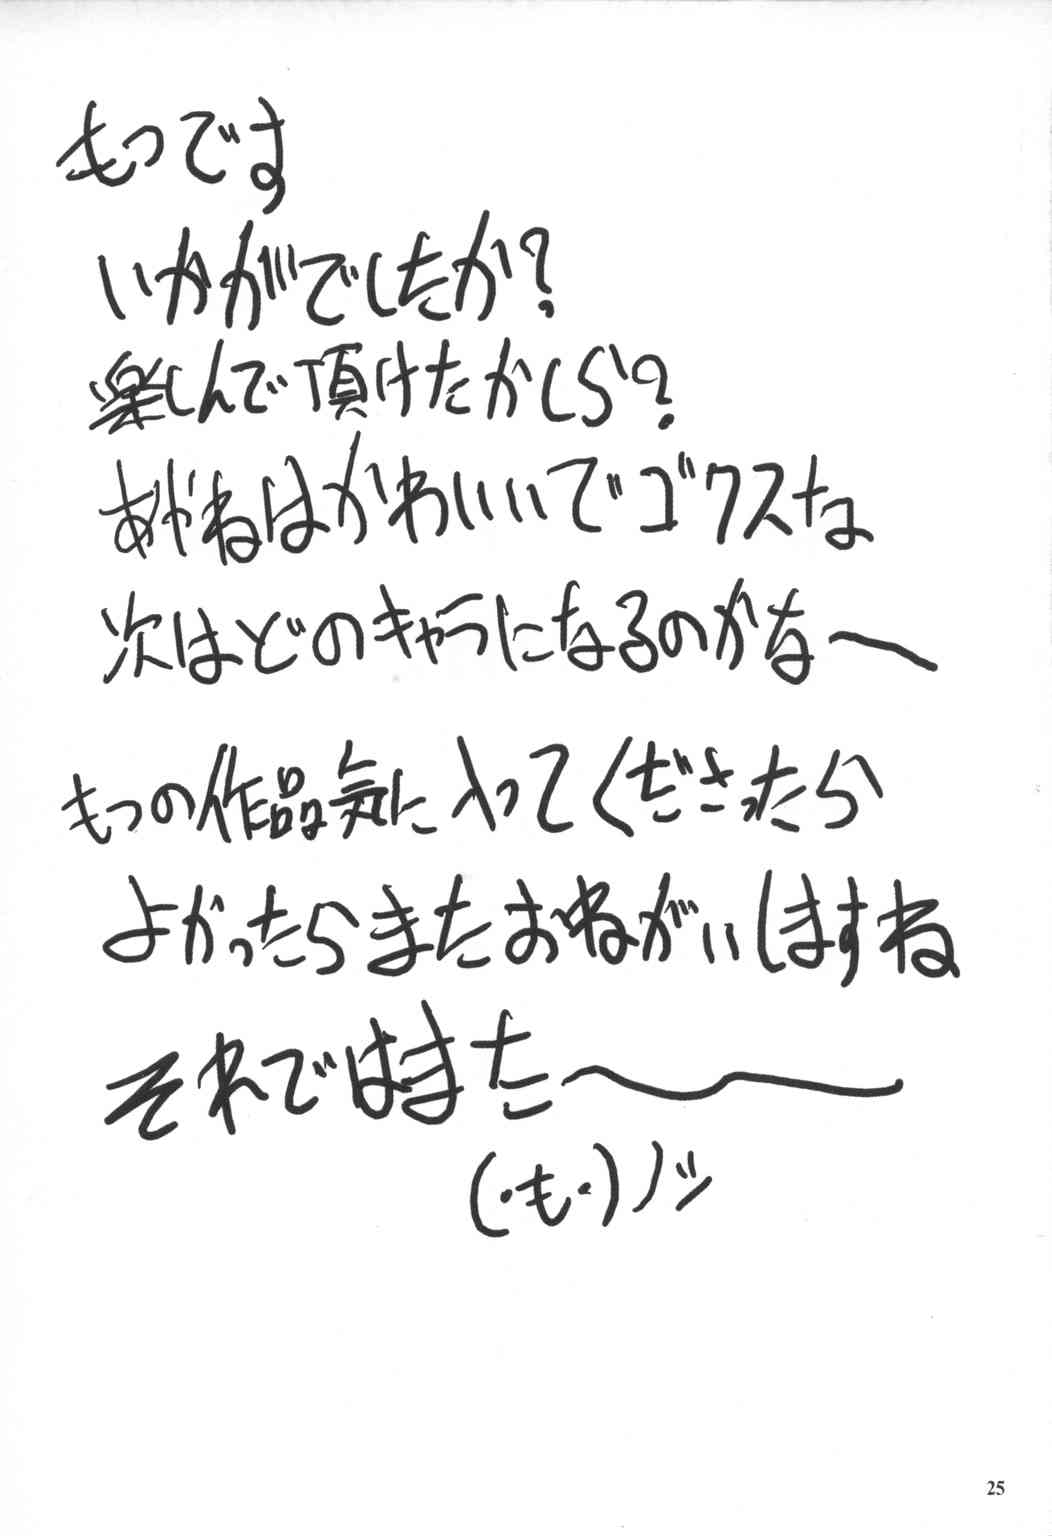 もつです
いかがでしたか?
楽しんで頂けたかしら?
あかねはかわいいでゴクスな
次はどのキャラになるのかな〜
もつの作品気に入ってくださったら
よかったらまたおねがいしますね
それではまた〜〜
(・も・)ノシ
25